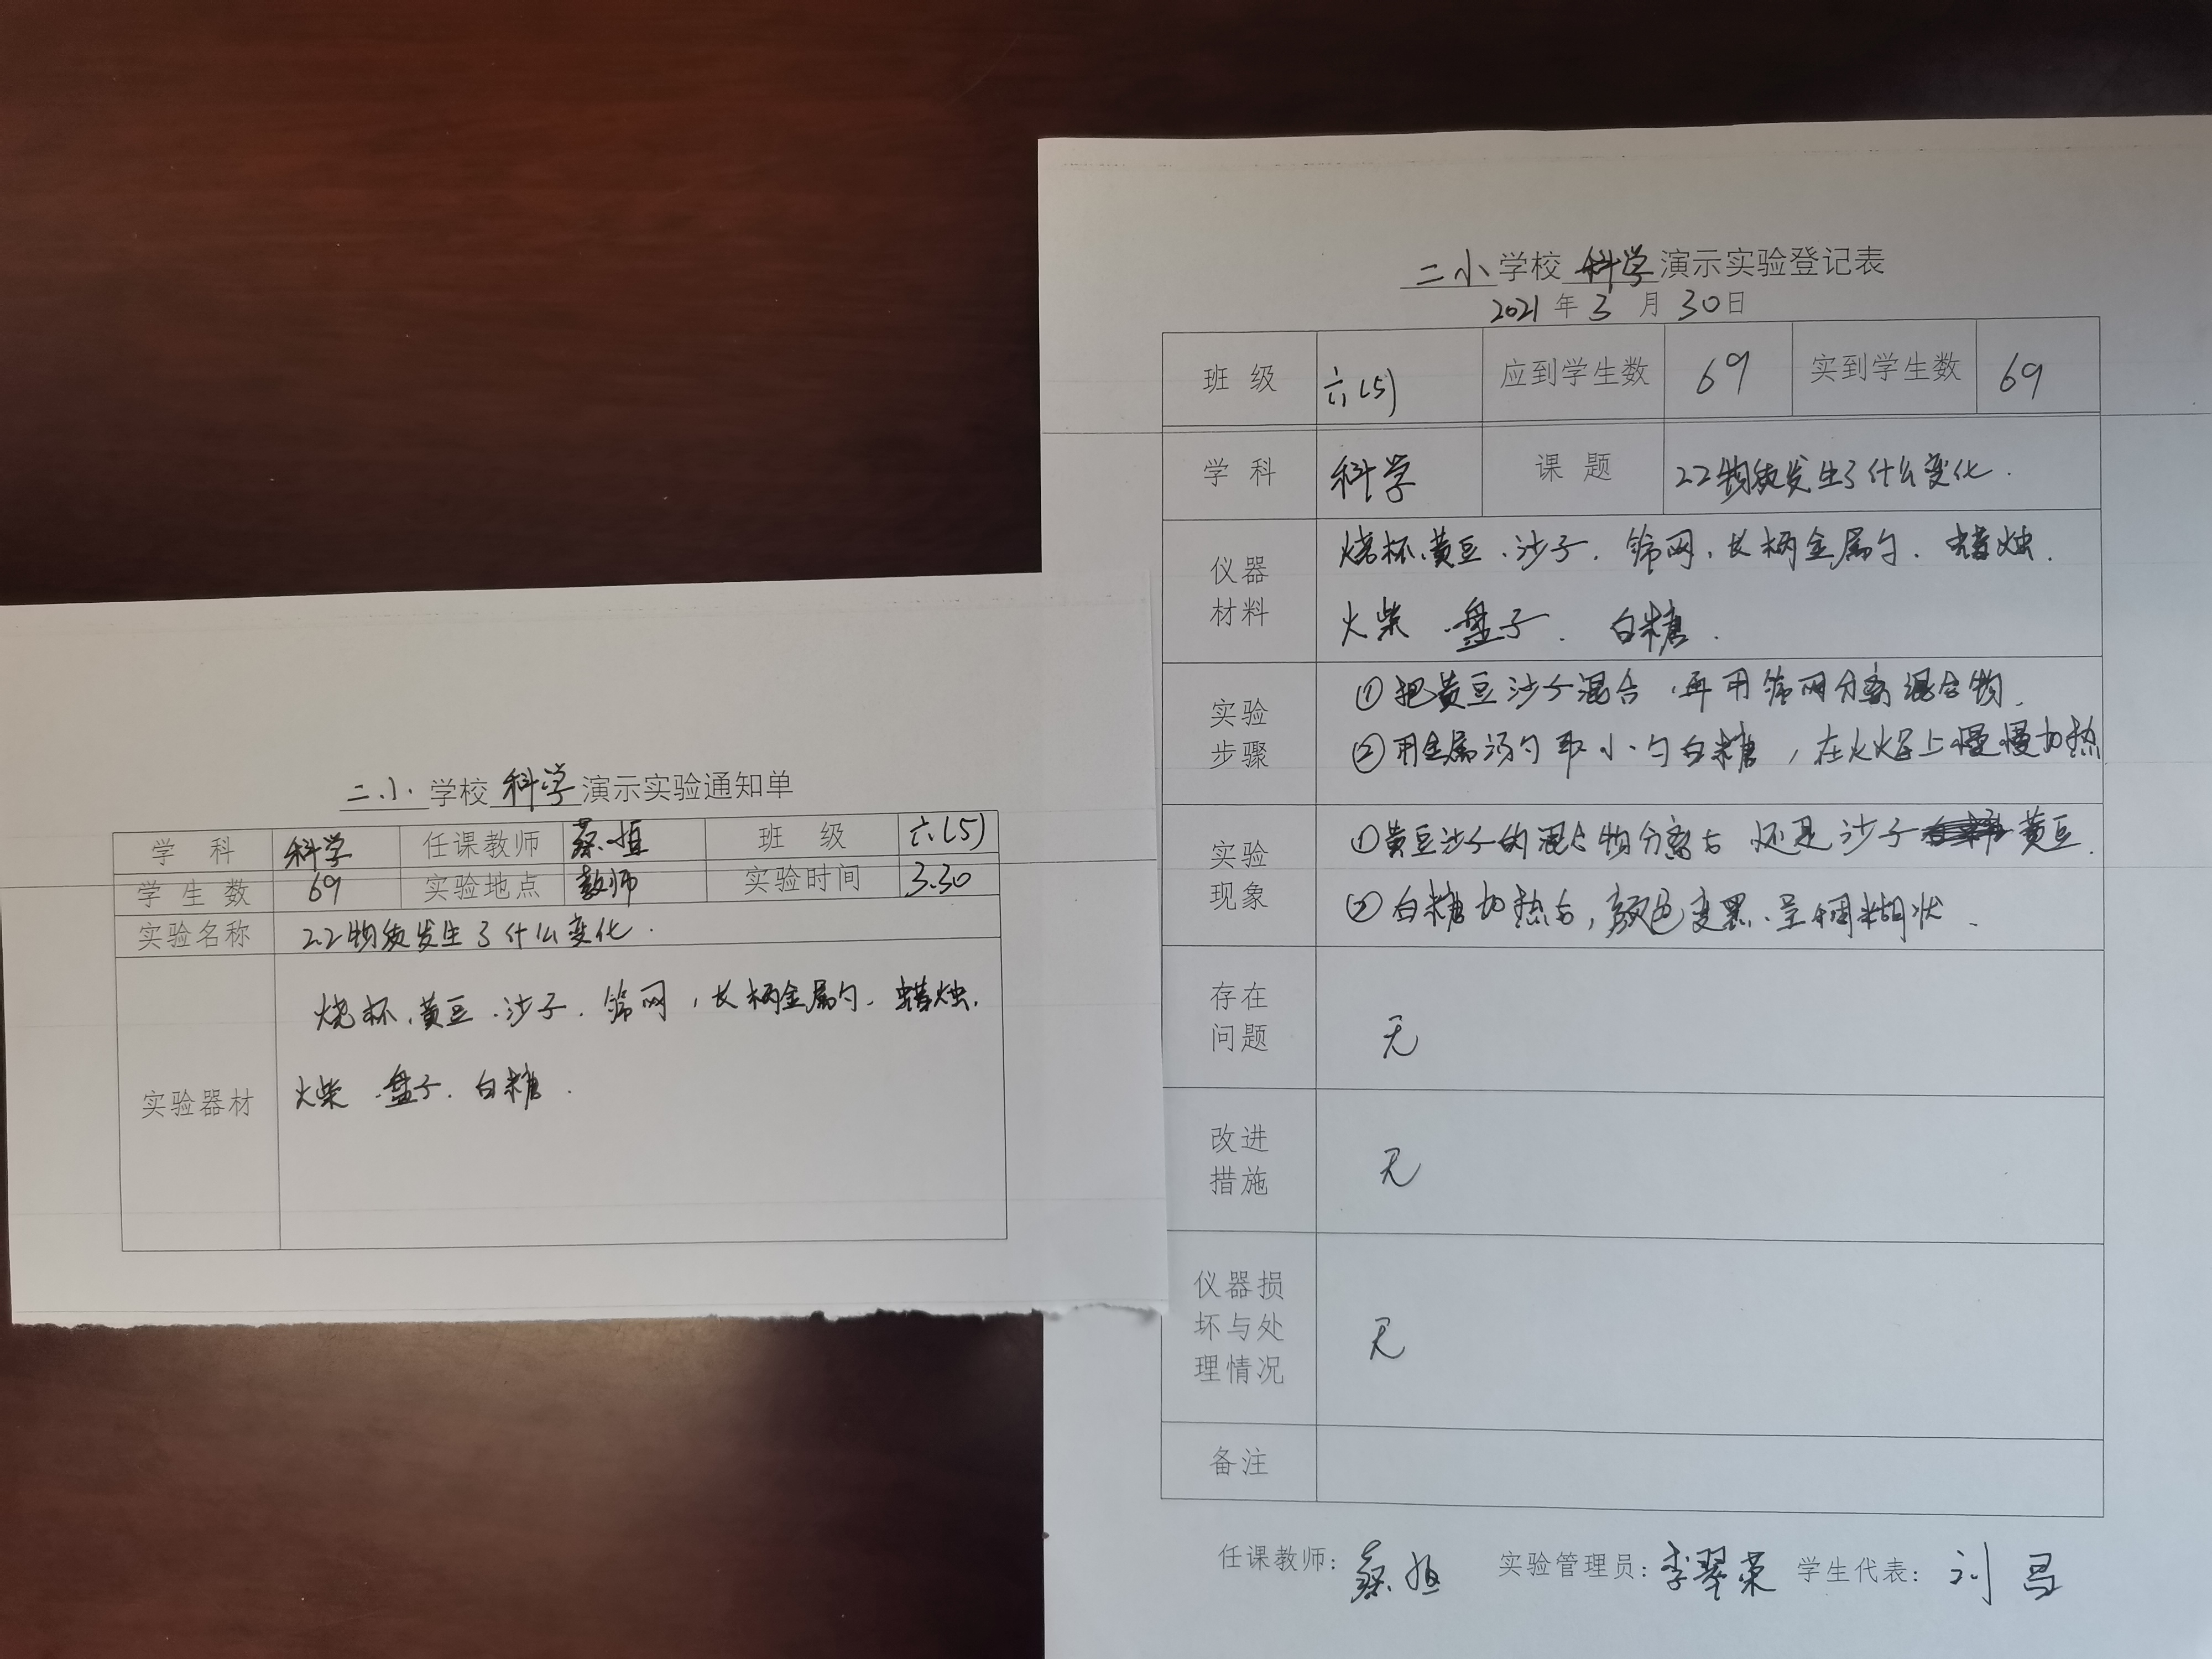 二小学校科学演示实验通知单
学科 科学 任课教师 蔡 班级 六(5)
学生数 69 实验地点 教师 实验时间 3.30
实验名称 2.2物质发生了什么变化.
实验器材
烧杯、黄豆、沙子、筛网,长柄金属勺、蜡烛.
火柴、盘子、白糖.
二小学校科学演示实验登记表
2021年3月30日
班级 六(5) 应到学生数 69 实到学生数 69
学科 科学 课题 2.2物质发生了什么变化.
仪器材料
烧杯、黄豆、沙子、筛网、长柄金属勺、蜡烛.
火柴、盘子、白糖.
实验步骤
①把黄豆沙子混合,再用筛网分离混合物.
②用金属汤勺取小勺白糖,在火焰上慢慢加热
实验现象
①黄豆沙子的混合物分离后还是沙子黄豆.
②白糖加热后,颜色变黑、呈稠糊状.
存在问题 无
改进措施 无
仪器损坏与处理情况 无
备注
任课教师: 蔡 实验管理员: 李翠荣 学生代表: 刘